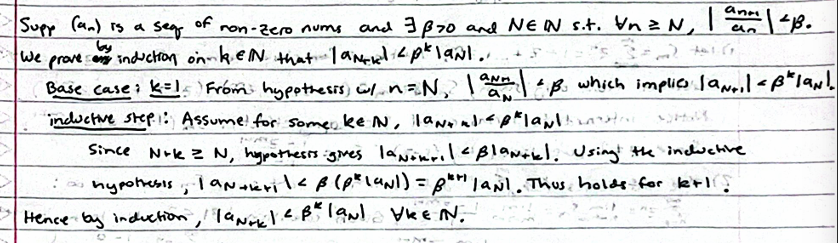 Supp (aₙ) is a seq of non-zero nums and ∃ β>0 and N∈ℕ s.t. ∀n ≥ N, |aₙ₊₁/aₙ| < β.
We prove by induction on k∈ℕ that |a_{N+k}| < β^k |a_N|.
Base case: k=1. From hypothesis w/ n=N, |a_{N+1}/a_N| < β which implies |a_{N+1}| < β^k |a_N|.
inductive step: Assume for some k∈ℕ, |a_{N+k}| < β^k |a_N|
Since N+k ≥ N, hypothesis gives |a_{N+k+1}| < β|a_{N+k}|. Using the inductive
hypothesis, |a_{N+k+1}| < β(β^k |a_N|) = β^{k+1} |a_N|. Thus holds for k+1.
Hence by induction, |a_{N+k}| < β^k |a_N| ∀k∈ℕ.